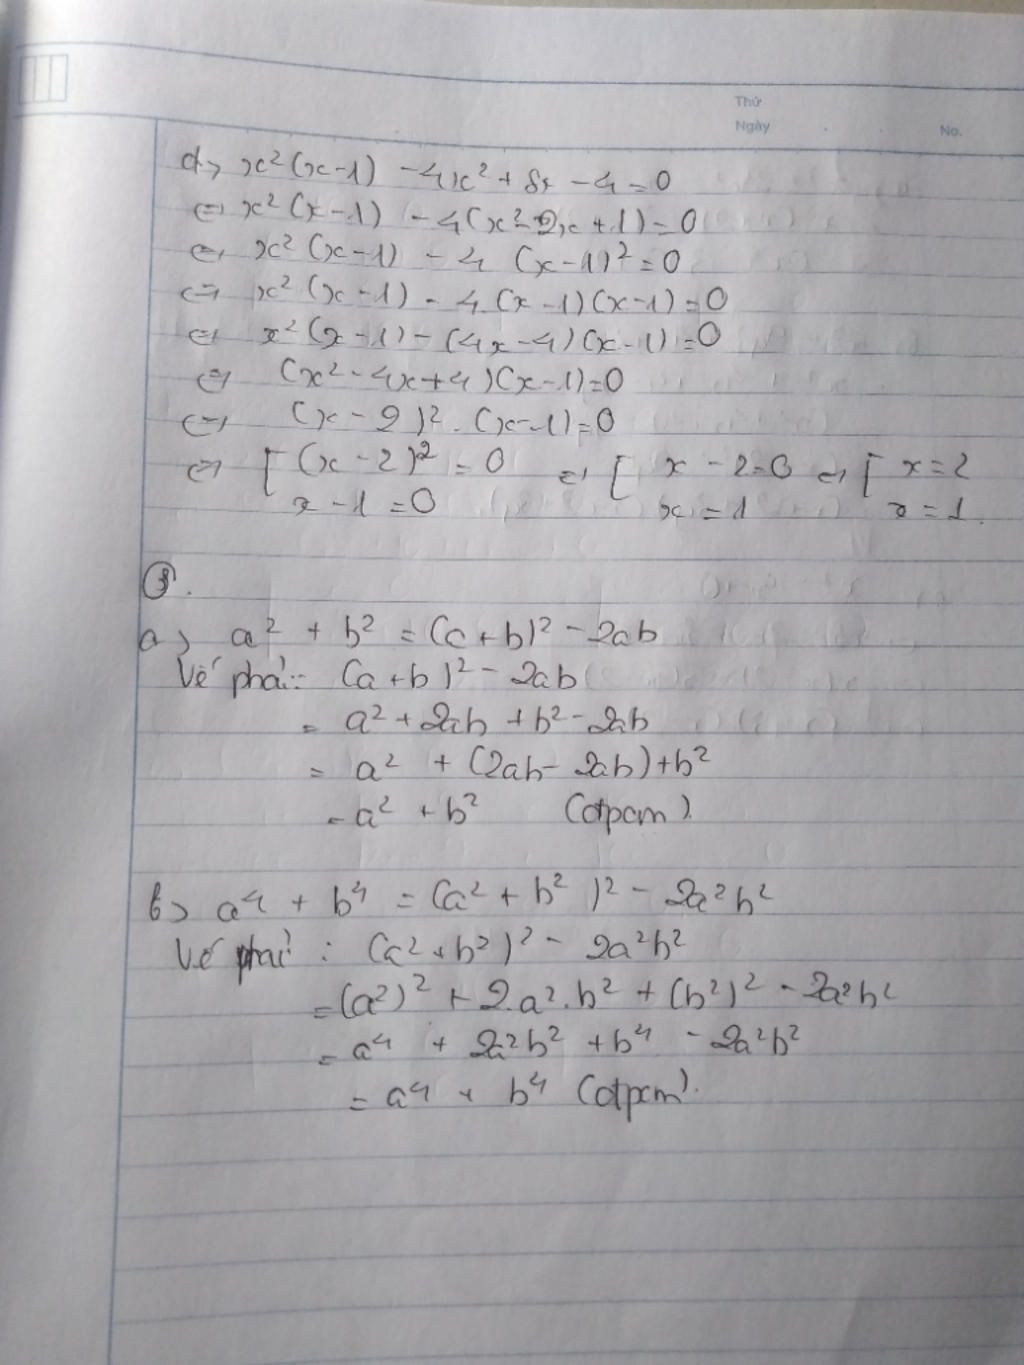 Thứ
Ngày No.
d, x²(x-1) - 4x² + 8x - 4 = 0
⇔ x²(x-1) - 4(x² - 2x + 1) = 0
⇔ x²(x-1) - 4 (x-1)² = 0
⇔ x²(x-1) - 4(x-1)(x-1) = 0
⇔ x²(x-1) - (4x-4)(x-1) = 0
⇔ (x² - 4x + 4)(x-1) = 0
⇔ (x-2)².(x-1) = 0
⇔ [ (x-2)² = 0 ⇔ [ x - 2 = 0 ⇔ [ x = 2
x - 1 = 0 x = 1 x = 1.
③.
a, a² + b² = (a+b)² - 2ab
Vế phải: (a+b)² - 2ab
= a² + 2ab + b² - 2ab
= a² + (2ab - 2ab) + b²
= a² + b² (đpcm).
b, a⁴ + b⁴ = (a² + b²)² - 2a²b²
Vế phải: (a² + b²)² - 2a²b²
= (a²)² + 2.a².b² + (b²)² - 2a²b²
= a⁴ + 2a²b² + b⁴ - 2a²b²
= a⁴ + b⁴ (đpcm).